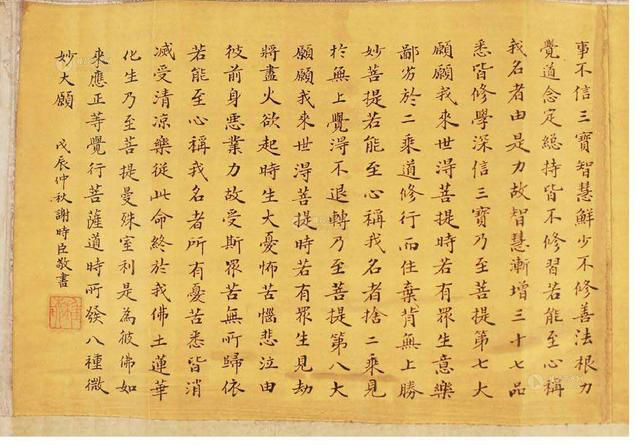 事不信三寶智慧鮮少不修善法根力
覺道念定総持皆不修習若能至心稱
我名者由是力故智慧漸增三十七品
悉皆修學深信三寶乃至菩提第七大
願願我来世得菩提時若有眾生意樂
鄙劣於二乘道修行而住棄背無上勝
妙菩提若能至心稱我名者捨二乘見
於無上覺得不退轉乃至菩提第八大
願願我来世得菩提時若有眾生見劫
將盡火欲起時生大憂怖苦惱悲泣由
彼前身惡業力故受斯眾苦無所歸依
若能至心稱我名者所有憂苦悉皆消
滅受清凉樂從此命終於我佛土蓮華
化生乃至菩提曼殊室利是為彼佛如
来應正等覺行菩薩道時所發八種微
妙大願
戊辰仲秋謝時臣敬書